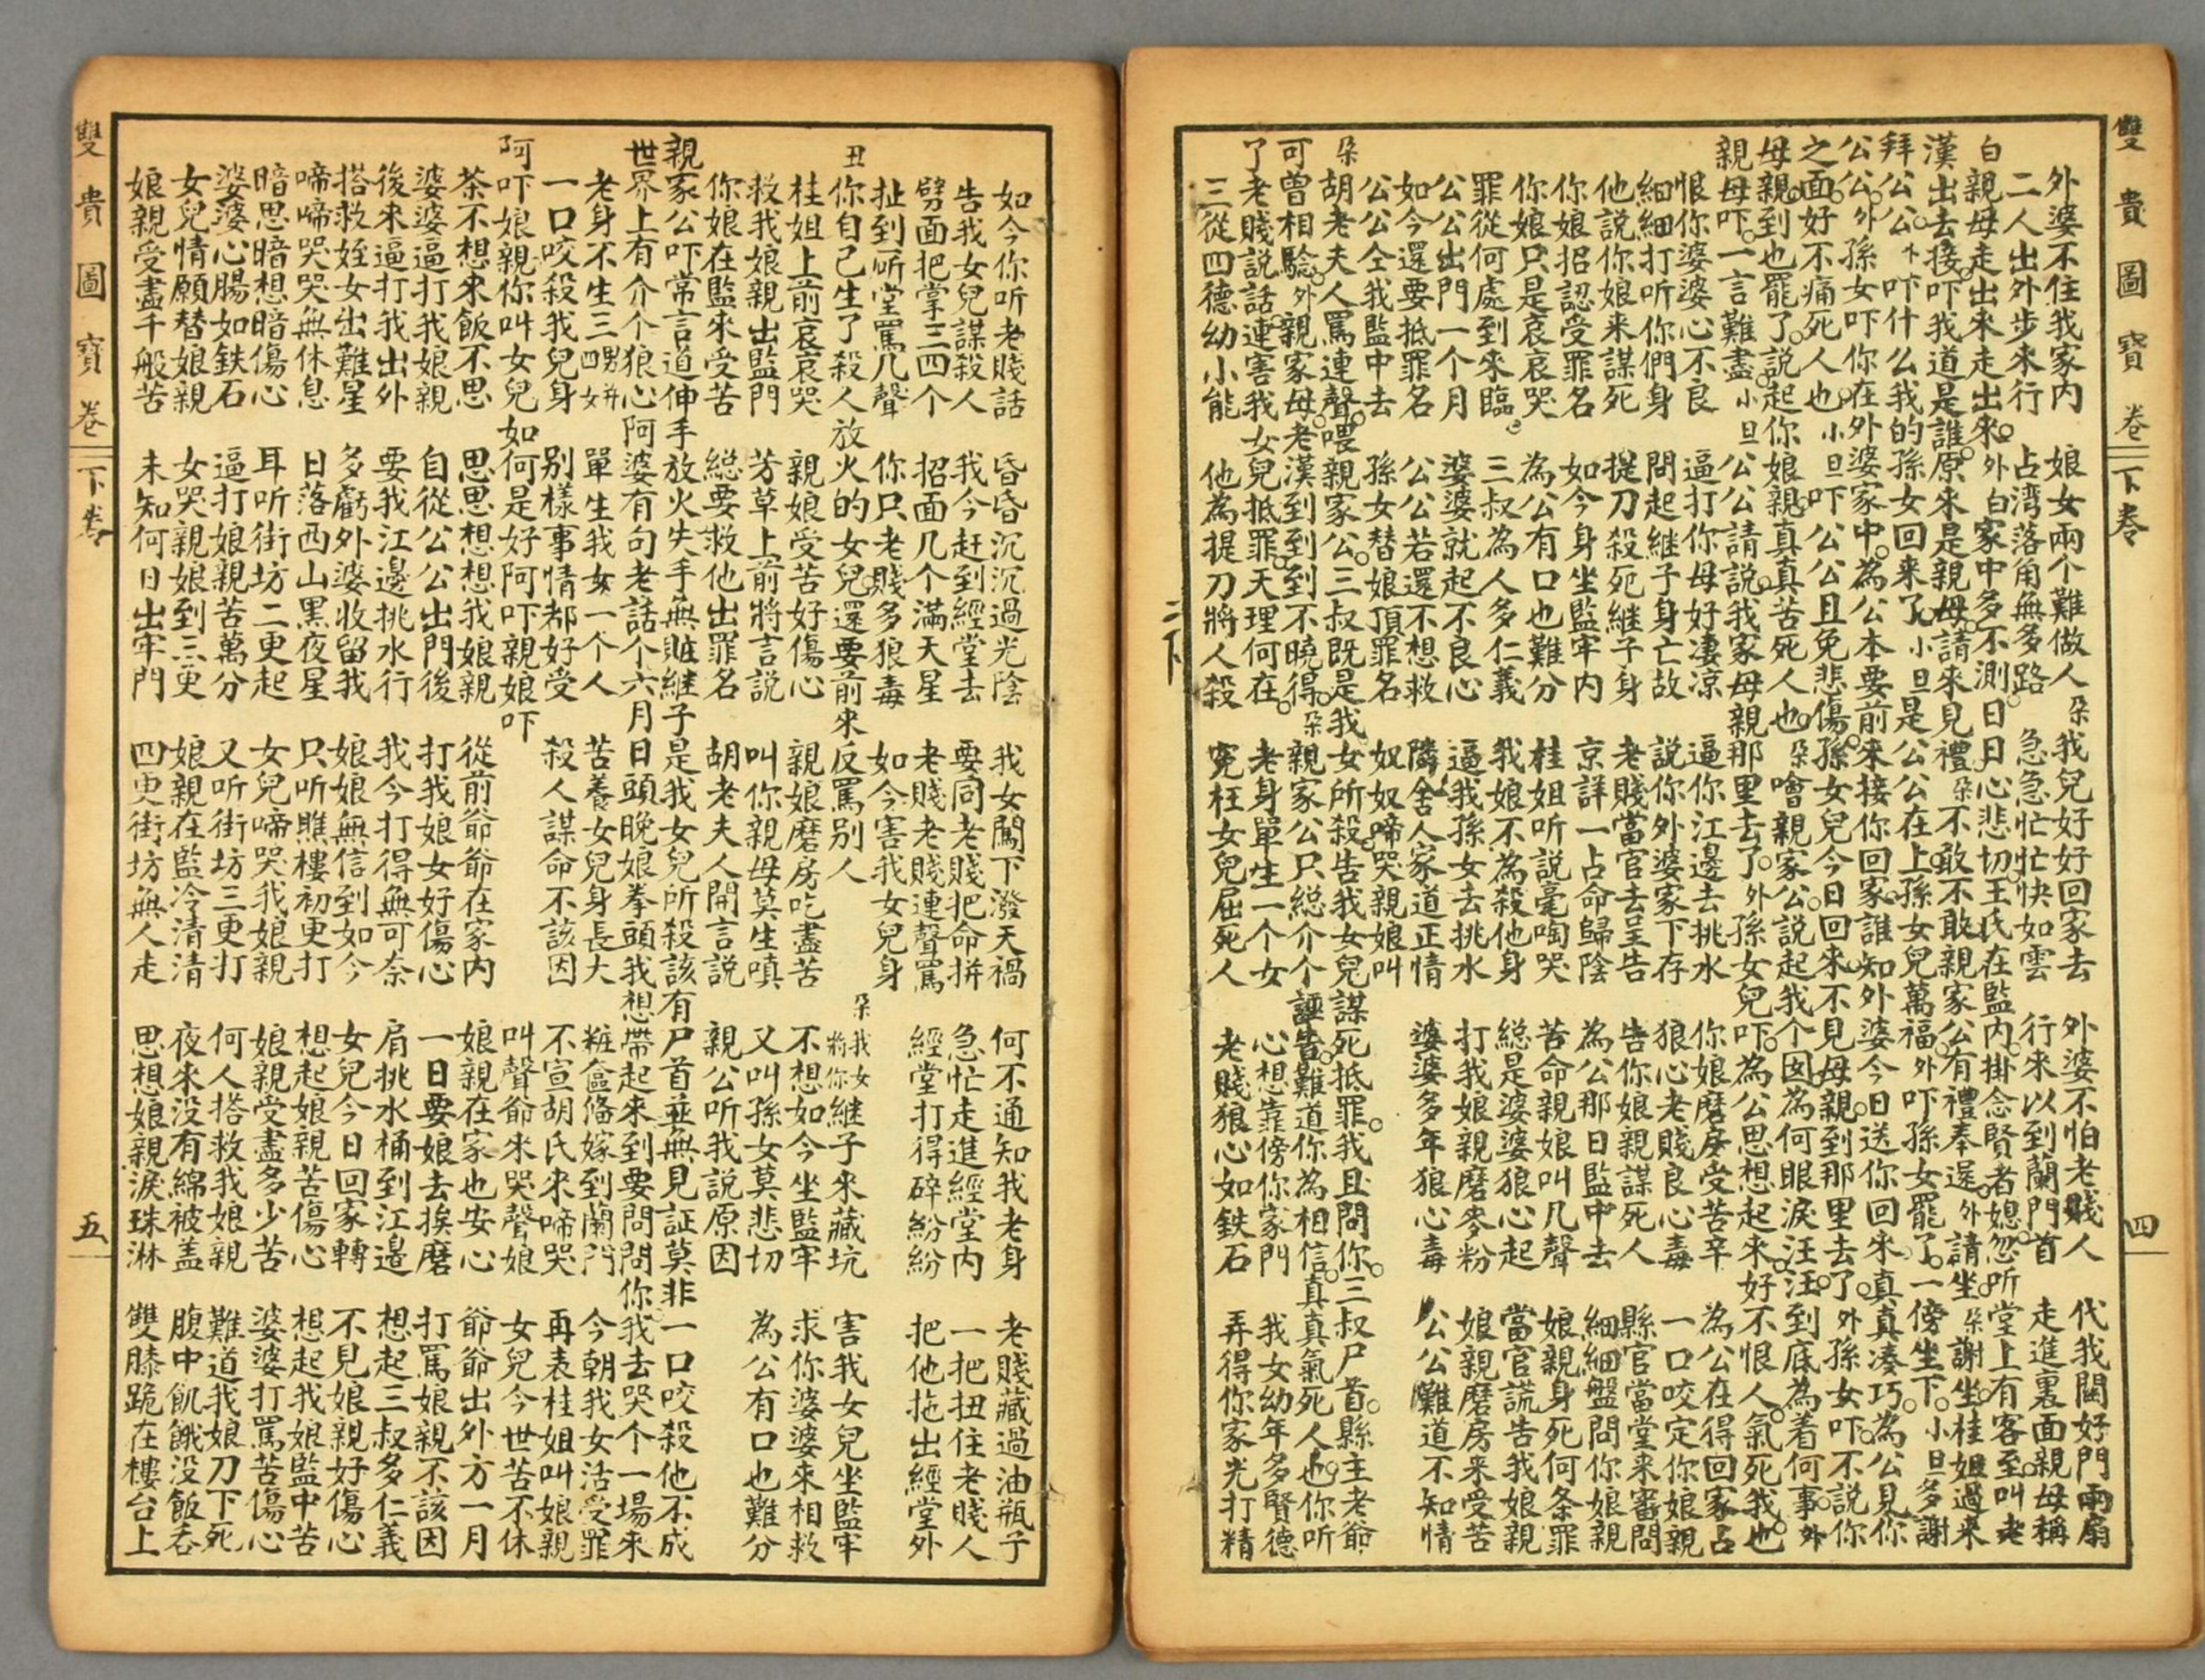 雙貴圖寶卷 下卷 四
外婆不住我家内 娘女兩个難做人 朶我兒好好回家去 外婆不怕老賤人 代我関好門兩扇
二人出外步來行 占湾落角無多路 急急忙忙快如雲 行來以到蘭門首 走進裏面親母稱
白親母走出來走出來外白家中多不測日日心悲切王氏在監内掛念賢者媳忽听堂上有客至叫老
漢出去接吓我道是誰原來是親母請來見禮朶不敢不敢親家公有禮奉還外請坐朶謝坐桂姐過來
拜公公卜吓什么我的孫女回來了小旦是公公在上孫女兒萬福外吓孫女罷了一傍坐下小旦多謝
公公外孫女吓你在外婆家中為公本要前來接你回家誰知外婆今日送你回來真真凑巧為公見你
之面好不痛死人也小旦吓公公且免悲傷孫女兒今日回來不見母親到那里去了外孫女吓不説你
母親到也罷了説起你娘親真真苦死人也朶噲親家公説起我个囡為何眼淚汪汪到底為着何事外
親母吓一言難盡小旦公公請説我家母親那里去了外孫女兒吓為公思想起來好不恨人氣死我也
恨你婆婆心不良 逼打你母好凄凉 逼你江邊去挑水 你娘磨房受苦辛 為公在得回家占
細細打听你們身 問起継子身亡故 説你外婆家下存 狼心老賤良心毒 一口咬定你娘親
他説你娘来謀死 提刀殺死継子身 老賤當官去呈告 告你娘親謀死人 縣官當堂来審問
你娘招認受罪名 如今身坐監牢内 京詳一占命歸陰 為公那日監中去 細細盤問你娘親
你娘只是哀哀哭 為公有口也難分 桂姐听説毫啕哭 苦命親娘叫几聲 娘親身死何条罪
罪從何處到來臨 三叔為人多仁義 我娘不為殺他身 総是婆婆狼心起 當官謊告我娘親
公公出門一个月 婆婆就起不良心 逼我孫女去挑水 打我娘親磨麥粉 娘親磨房来受苦
如今還要抵罪名 公公若還不想救 隣舍人家道正情 婆婆多年狼心毒 公公難道不知情
公公仝我監中去 孫女替娘頂罪名 奴奴啼哭親娘叫
朶胡老夫人罵連聲喂親家公三叔既是我女所殺告我女兒謀死抵罪我且問你三叔尸首縣主老爺
可曾相驗外親家母老漢到到到不曉得朶親家公只総介个誣告難道你為相信真真氣死人也你听
了老賤説話連害我女兒抵罪天理何在 老身單生一个女 心想靠傍你家門 我女幼年多賢德
三從四德幼小能 他為提刀將人殺 寃枉女兒屈死人 老賤狼心如鉄石 弄得你家光打精
二下
如今你听老賤話 昏昏沉沉過光陰 我女闖下潑天禍 何不通知我老身 老賤藏過油瓶子
告我女兒謀殺人 我今赶到經堂去 要同老賤把命拚 急忙走進經堂内 一把扭住老賤人
劈面把掌三四个 招面几个滿天星 老賤老賤連聲罵 經堂打得碎紛紛 把他拖出經堂外
扯到听堂罵几聲 你只老賤多狼毒 如今害我女兒身
丑你自己生了殺人放火的女兒還要前來反罵別人 朶我女將你継子來藏坑 害我女兒坐監牢
桂姐上前哀哀哭 親娘受苦好傷心 親娘磨房吃盡苦 不想如今坐監牢 求你婆婆來相救
救我娘親出監門 芳草上前將言説 叫你親母莫生嗔 又叫孫女莫悲切 為公有口也難分
你娘在監來受苦 総要救他出罪名 胡老夫人開言説 親公听我説原因
親家公吓常言道伸手放火失手無賍継子是我女兒所殺該有尸首並無見証莫非一口咬殺他不成
世界上有介个狼心阿婆有句老話个六月日頭晚娘拳頭我想帶起来到要問問你我去哭个一場來
老身不生三男并四女 單生我女一个人 苦養女兒身長大 粧奩俻嫁到蘭門 今朝我女活受罪
一口咬殺我兒身 別樣事情都好受 殺人謀命不該因 不宣胡氏來啼哭 再表桂姐叫娘親
阿吓娘親你叫女兒如何是好阿吓親娘吓 叫聲爺來哭聲娘 女兒今世苦不休
茶不想來飯不思 思思想想我娘親 從前爺爺在家内 娘親在家也安心 爺爺出外方一月
婆婆逼打我娘親 自從公公出門後 打我娘女好傷心 一日要娘去挨磨 打罵娘親不該因
後來逼打我出外 要我江邊挑水行 我今打得無可奈 肩挑水桶到江邉 想起三叔多仁義
搭救姪女出難星 多虧外婆收留我 娘娘無信到如今 女兒今日回家轉 不見娘親好傷心
啼啼哭哭無休息 日落西山黑夜星 只听瞧樓初更打 想起娘親苦傷心 想起我娘監中苦
暗思暗想暗傷心 耳听街坊二更起 女兒啼哭我娘親 娘親受盡多少苦 婆婆打罵苦傷心
婆婆心腸如鉄石 逼打娘親苦萬分 又听街坊三更打 何人搭救我娘親 難道我娘刀下死
女兒情願替娘親 女哭親娘到三更 娘親在監冷清清 夜來没有綿被盖 腹中飢餓没飯吞
娘親受盡千般苦 未知何日出牢門 四更街坊無人走 思想娘親淚珠淋 雙膝跪在樓台上
雙貴圖寶卷 下卷 五